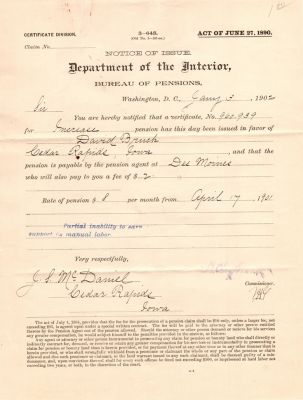 CERTIFICATE DIVISION.
3—643.
ACT OF JUNE 27, 1890.
Claim No.
NOTICE OF ISSUE.
Department of the Interior,
BUREAU OF PENSIONS,
Washington, D. C., Jany 3, 1902
Sir
You are hereby notified that a certificate, No. 920,939
for Increase pension has this day been issued in favor of
David Brush
Cedar Rapids Iowa, and that the
pension is payable by the pension agent at Des Moines
who will also pay to you a fee of $ 2
Rate of pension $ 8 per month from April 17, 1901
Partial inability to earn
support by manual labor.
Very respectfully,
Commissioner.
J. S. McDaniel
Cedar Rapids
Iowa
The act of July 4, 1884, provides that the fee for the prosecution of a pension claim shall be $10 only, unless a larger fee, not
exceeding $25, is agreed upon under a special written contract. The fee will be paid to the attorney or other person entitled
thereto by the Pension Agent out of the pension allowed. Should the attorney or other person demand or receive for his services
any greater compensation, he would subject himself to the penalties provided in the session, as follows:
Any agent or attorney or other person instrumental in prosecuting any claim for pension or bounty land who shall directly or
indirectly contract for, demand, or receive or retain any greater compensation for his services or instrumentality in prosecuting a
claim for pension or bounty land than is herein provided, or for payment thereof at any other time or in any other manner than is
herein provided, or who shall wrongfully withhold from a pensioner or claimant the whole or any part of the pension or claim
allowed and due such pensioner or claimant, or the land warrant issued to any such claimant, shall be deemed guilty of a misdemeanor,
and, upon conviction thereof, shall for every such offense be fined not exceeding $500, or imprisoned at hard labor not
exceeding two years, or both, in the discretion of the court.